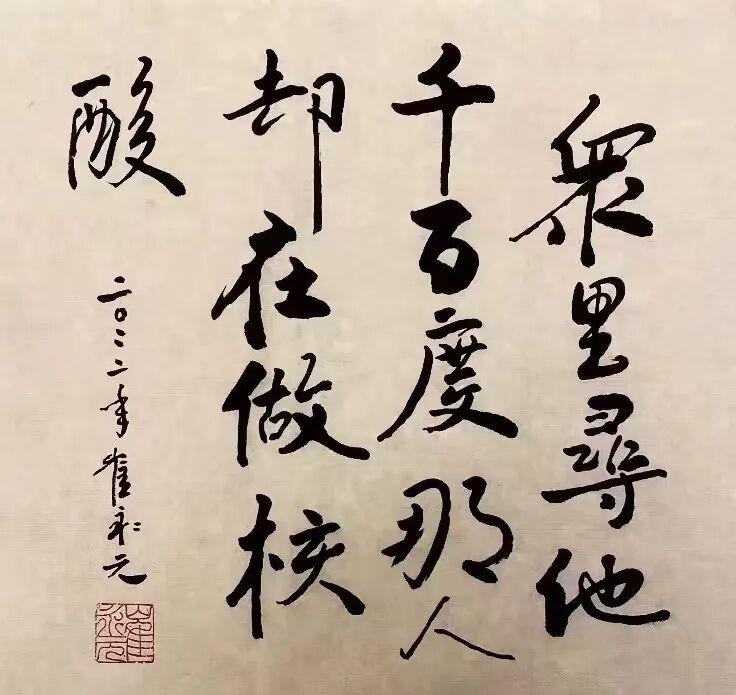 衆里尋他
千百度那人
却在做核
酸
二〇二二年崔永元
崔永元